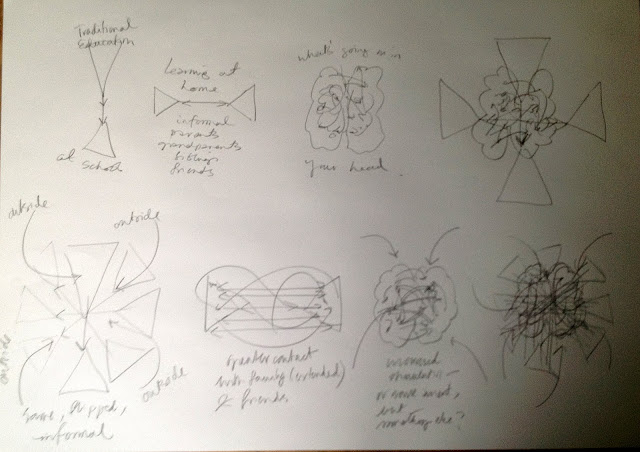 Traditional
Education
at School
Learning at
home
informal
parents
grandparents
siblings
friends
what's going on in
your head.
outside
outside
outside
outside
same, flipped,
informal
greater contact
with family (extended)
& friends
increased
stimulation –
or some amount,
but
something else?